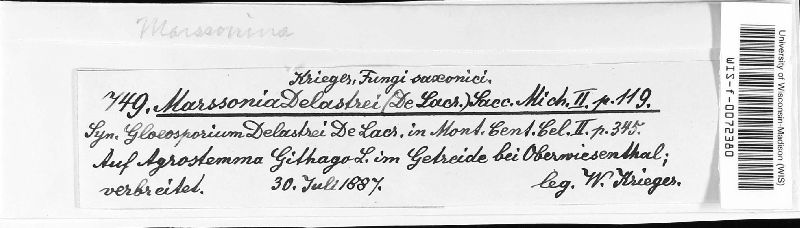 Marssonina
Krieger, Fungi saxonici.
749. Marssonia Delastrei (De Lacr.) Sacc. Mich. II. p. 119.
Syn. Gloeosporium Delastrei De Lacr. in Mont. Cent. Cel. II. p. 345.
Auf Agrostemma Githago L. im Getreide bei Oberwiesenthal;
verbreitet. 30. Juli 1887. leg. W. Krieger.
University of Wisconsin-Madison (WIS)
WIS-f-0072380